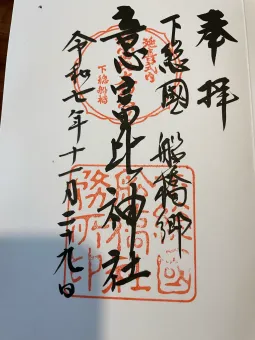 奉拝
下総國 船橋郷
意富比神社
令和七年十一月二十九日
延喜式内
下総船橋